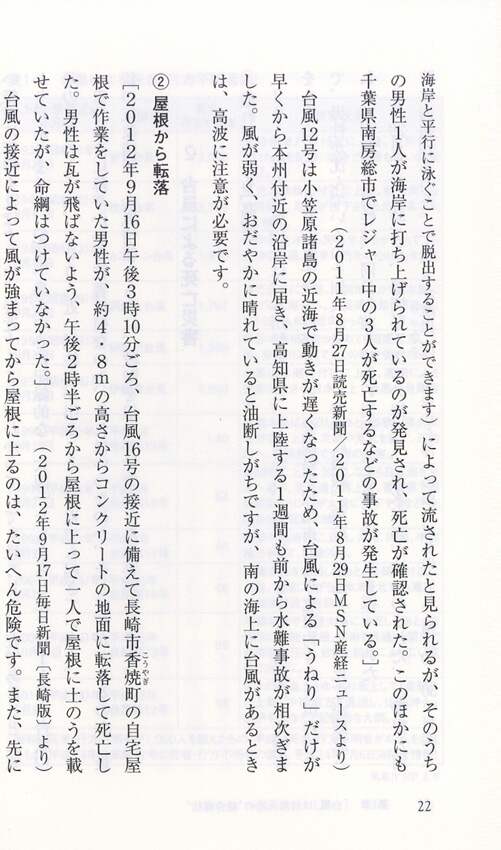 海岸と平行に泳ぐことで脱出することができます）によって流されたと見られるが、そのうち
の男性1人が海岸に打ち上げられているのが発見され、死亡が確認された。このほかにも
千葉県南房総市でレジャー中の3人が死亡するなどの事故が発生している。］
（2011年8月27日読売新聞／2011年8月29日MSN産経ニュースより）
台風12号は小笠原諸島の近海で動きが遅くなったため、台風による「うねり」だけが
早くから本州付近の沿岸に届き、高知県に上陸する1週間も前から水難事故が相次ぎま
した。風が弱く、おだやかに晴れていると油断しがちですが、南の海上に台風があるとき
は、高波に注意が必要です。
② 屋根から転落
［2012年9月16日午後3時10分ごろ、台風16号の接近に備えて長崎市香焼町の自宅屋
こうやぎ
根で作業をしていた男性が、約4・8mの高さからコンクリートの地面に転落して死亡し
た。男性は瓦が飛ばないよう、午後2時半ごろから屋根に上って一人で屋根に土のうを載
せていたが、命綱はつけていなかった。］（2012年9月17日毎日新聞〔長崎版〕より）
台風の接近によって風が強まってから屋根に上るのは、たいへん危険です。また、先に
22